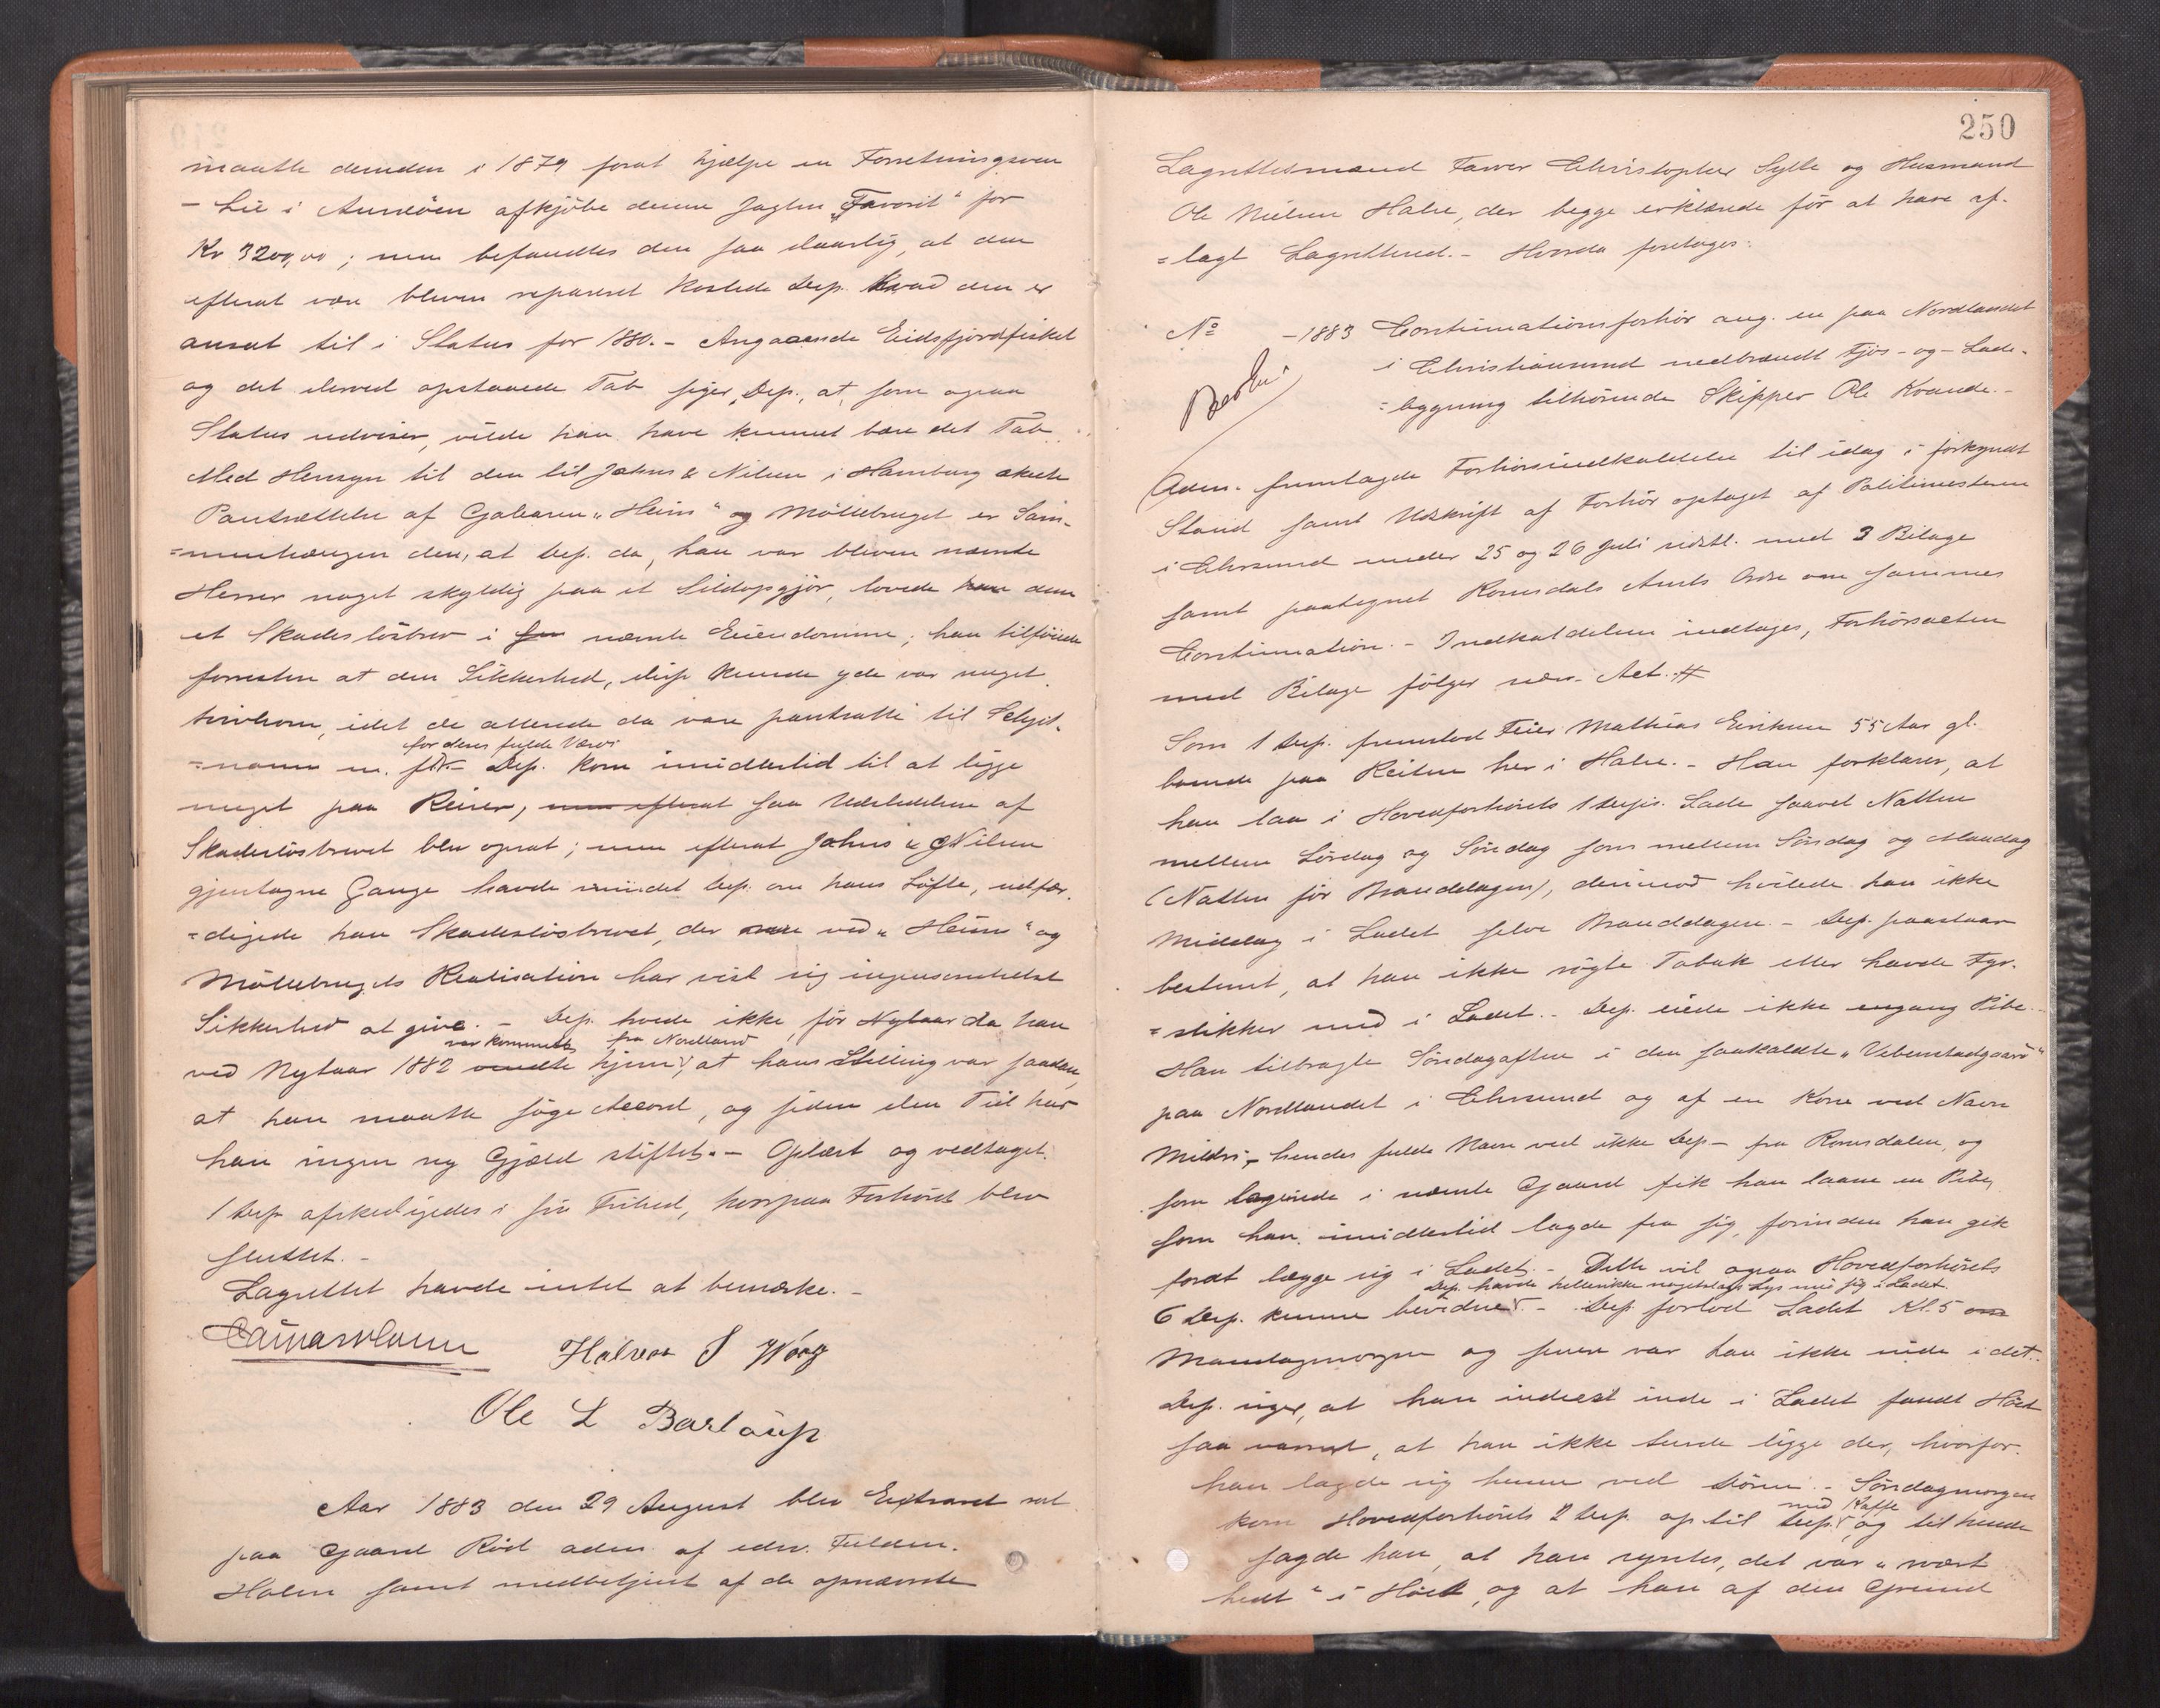 maatte desuden i 1879 forat hjælpe en Forretningsven
- Lie i Aureöen afkjöbe denne Jagten "Favorit" for
Kr 3200,00; men befandtes den saa daarlig, at den
efterat være bleven repareret kostede Dep. hvad den er
ansat til i Status for 1880. - Angaaende Eidsfjordfisket
og det derved opstaaede Tab siger Dep., at, som ogsaa
Status udviser, vilde han have kunnet bære det Tab.
Med Hensyn til den til Johns & Nilsen i Hamburg skete
Pantsættelse af Galeasen "Heim" og Möllebruget er Sam-
=menhængen den, at Dep. da han var bleven nævnte
Herrer noget skyldig paa et Sildopgjör, lovede dem
et Skadeslösbrev i nævnte Eiendomme; han tilföiede
forresten at den Sikkerhed, Dep kunde yde var meget
tvivlsom, idet de allerede da vare pantsatte til Schjöl-
for deres fulde Værdi
=nann m. fl. - Dep. kom imidlertid til at ligge
meget paa Reiser, saa Udstedelsen af
Skadeslösbrevet blev opsat; men efterat Johns & Nilsen
gjentagne Gange havde mindet Dep. om hans Löfte, udfær-
=digede han Skadeslösbrevet, der ved "Heim" og
Möllebrugets Realisation har vist sig ingensomhelst
Sikkerhed at give. - Dep. troede ikke, för Nytaar da han
var kommet fra Nordland
ved Nytaar 1882 hjem, at hans Stilling var saadan,
at han maatte söge Accord, og siden den Tid har
han ingen ny Gjæld stiftet. - Oplæst og vedtaget.
1 Dep afskedigedes i sin Frihed, hvorpaa Forhöret blev
sluttet. -
Lagrettet havde intet at bemærke. -
Halvor S Waag
Ole L
Aar 1883 den 29 August blev Extraret sat
paa Gaard Röd adm. af edsv. Fuldm.
Holm samt medbetjent af de opnævnte
250
Lagrettesmænd Farver Christopher Sylte og Husmand
Ole Nielsen Halse, der begge erklærede för at have af-
=lagt Lagretteed. - Hvorda foretages:
No - 1883 Continuationsforhör ang. en paa Nordlandet
i Christiansund nedbrændt Fjös- og Lade-
=bygning tilhörende Skipper Ole Kvande. -
Adm. fremlagde Forhörsindkaldelse til idag i forkyndt
Stand samt Udskrift af Forhör optaget af Politimesteren
i Chrsund under 25 og 26 Juli sidstl. med 3 Bilage
samt paategnet Romsdals Amts Ordre om sammes
Continuation. - Indkaldelsen indtages, Forhörsacten
med Bilage fölger nærv. Act.
Som 1 Dep. fremstod Feier Mathias Eriksen 55 Aar gl.
boende paa Reiten her i Halse. - Han forklarer, at
han laa i Hovedforhörets 1 Deps. Lade saavel Natten
mellem Lördag og Söndag som mellem Söndag og Mandag
(Natten för Branddagen), derimod hvilede han ikke
Middag i Ladet selve Branddagen. - Dep. paastaar
bestemt, at han ikke rögte Tobak eller havde Fyr-
=stikker med i Ladet. - Dep. eiede ikke engang Pibe. -
Han tilbragte Söndagaften i den saakaldte "Vebenstadgaard"
paa Nordlandet i Chrsund og af en Kone ved Navn
Mildri - hendes fulde Navn ved ikke Dep - fra Romsdalen, og
som logerede i nævnte Gaard fik han laane en Pibe,
som han imidlertid lagde fra sig, forinden han gik
forat lægge sig i Ladet. - Dette vil ogsaa Hovedforhörets
Dep. havde hellerikke nogetslags Lys med sig i Ladet.
6 Dep. kunne bevidne. - Dep. forlod Ladet Kl. 5
Mandagmorgen og senere var han ikke inde i det.
Dep. siger, at han inderst inde i Ladet fandt Höet
saa varmt, at han ikke turde ligge der, hvorfor
han lagde sig henne ved Dören. - Söndagmorgen
med Kaffe
kom Hovedforhörets 2 Dep. op til Dep. og til hende
sagde han, at han syntes, det var "svært
hedt" i Höet, og at han af den Grund